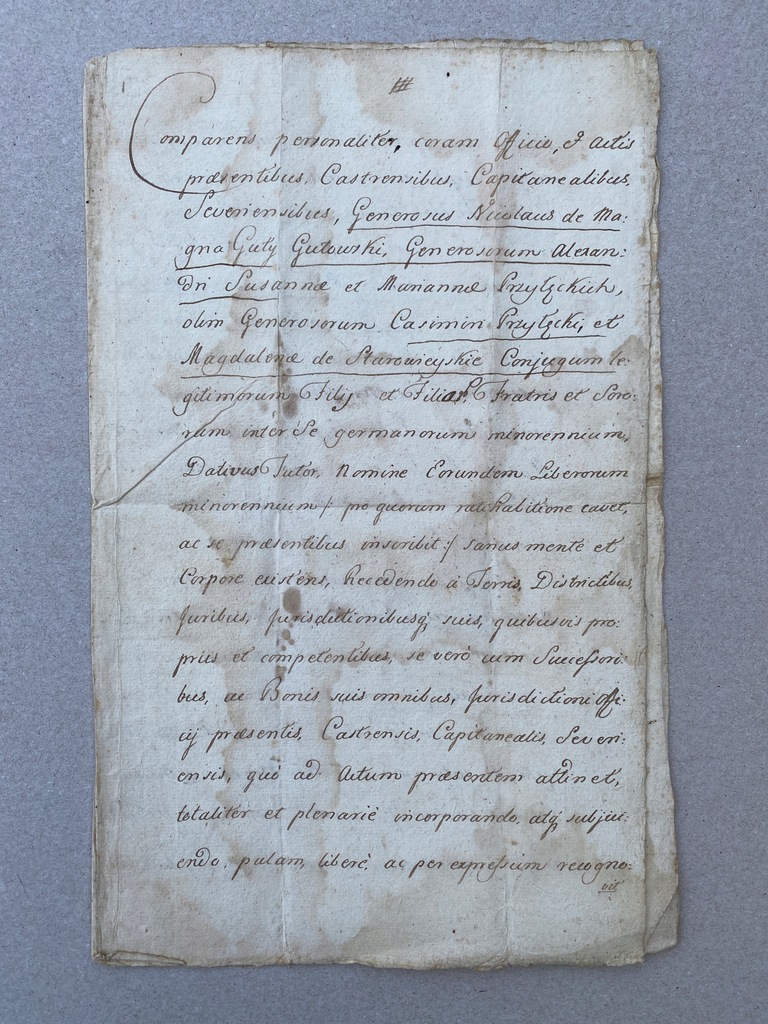 Comparens personaliter, coram Officio, et Actis
præsentibus, Castrensibus, Capitanealibus,
Severiensibus, Generosus Nicolaus de Ma:
gna Guty Gutowski, Generosorum Alexan:
dri Susannæ et Mariannæ Przyłęckich,
olim Generosorum Casimiri Przyłęcki, et
Magdalenæ de Starowieyskie Conjugum le:
gitimorum Filij et Filiar, Fratris et Soro:
rum inter Se germanorum minorennium,
Dativus Tutor, Nomine Eorundem Liberorum
minorennium /: pro quorum ratihabitione cavet,
ac se præsentibus inscribit :/ sanus mente et
Corpore existens, Recedendo à Terris, Districtibus,
Juribus, Jurisdictionibusq, suis, quibusvis pro:
priis et competentibus, se verò cum Successori:
bus, ac Bonis suis omnibus, Jurisdictioni Offi:
cij præsentis, Castrensis, Capitanealis, Severi:
ensis, quò ad Actum præsentem attinet,
totaliter et plenariè incorporando, atq, subjici:
endo, palam, liberè, ac per expressum recogno:
vit